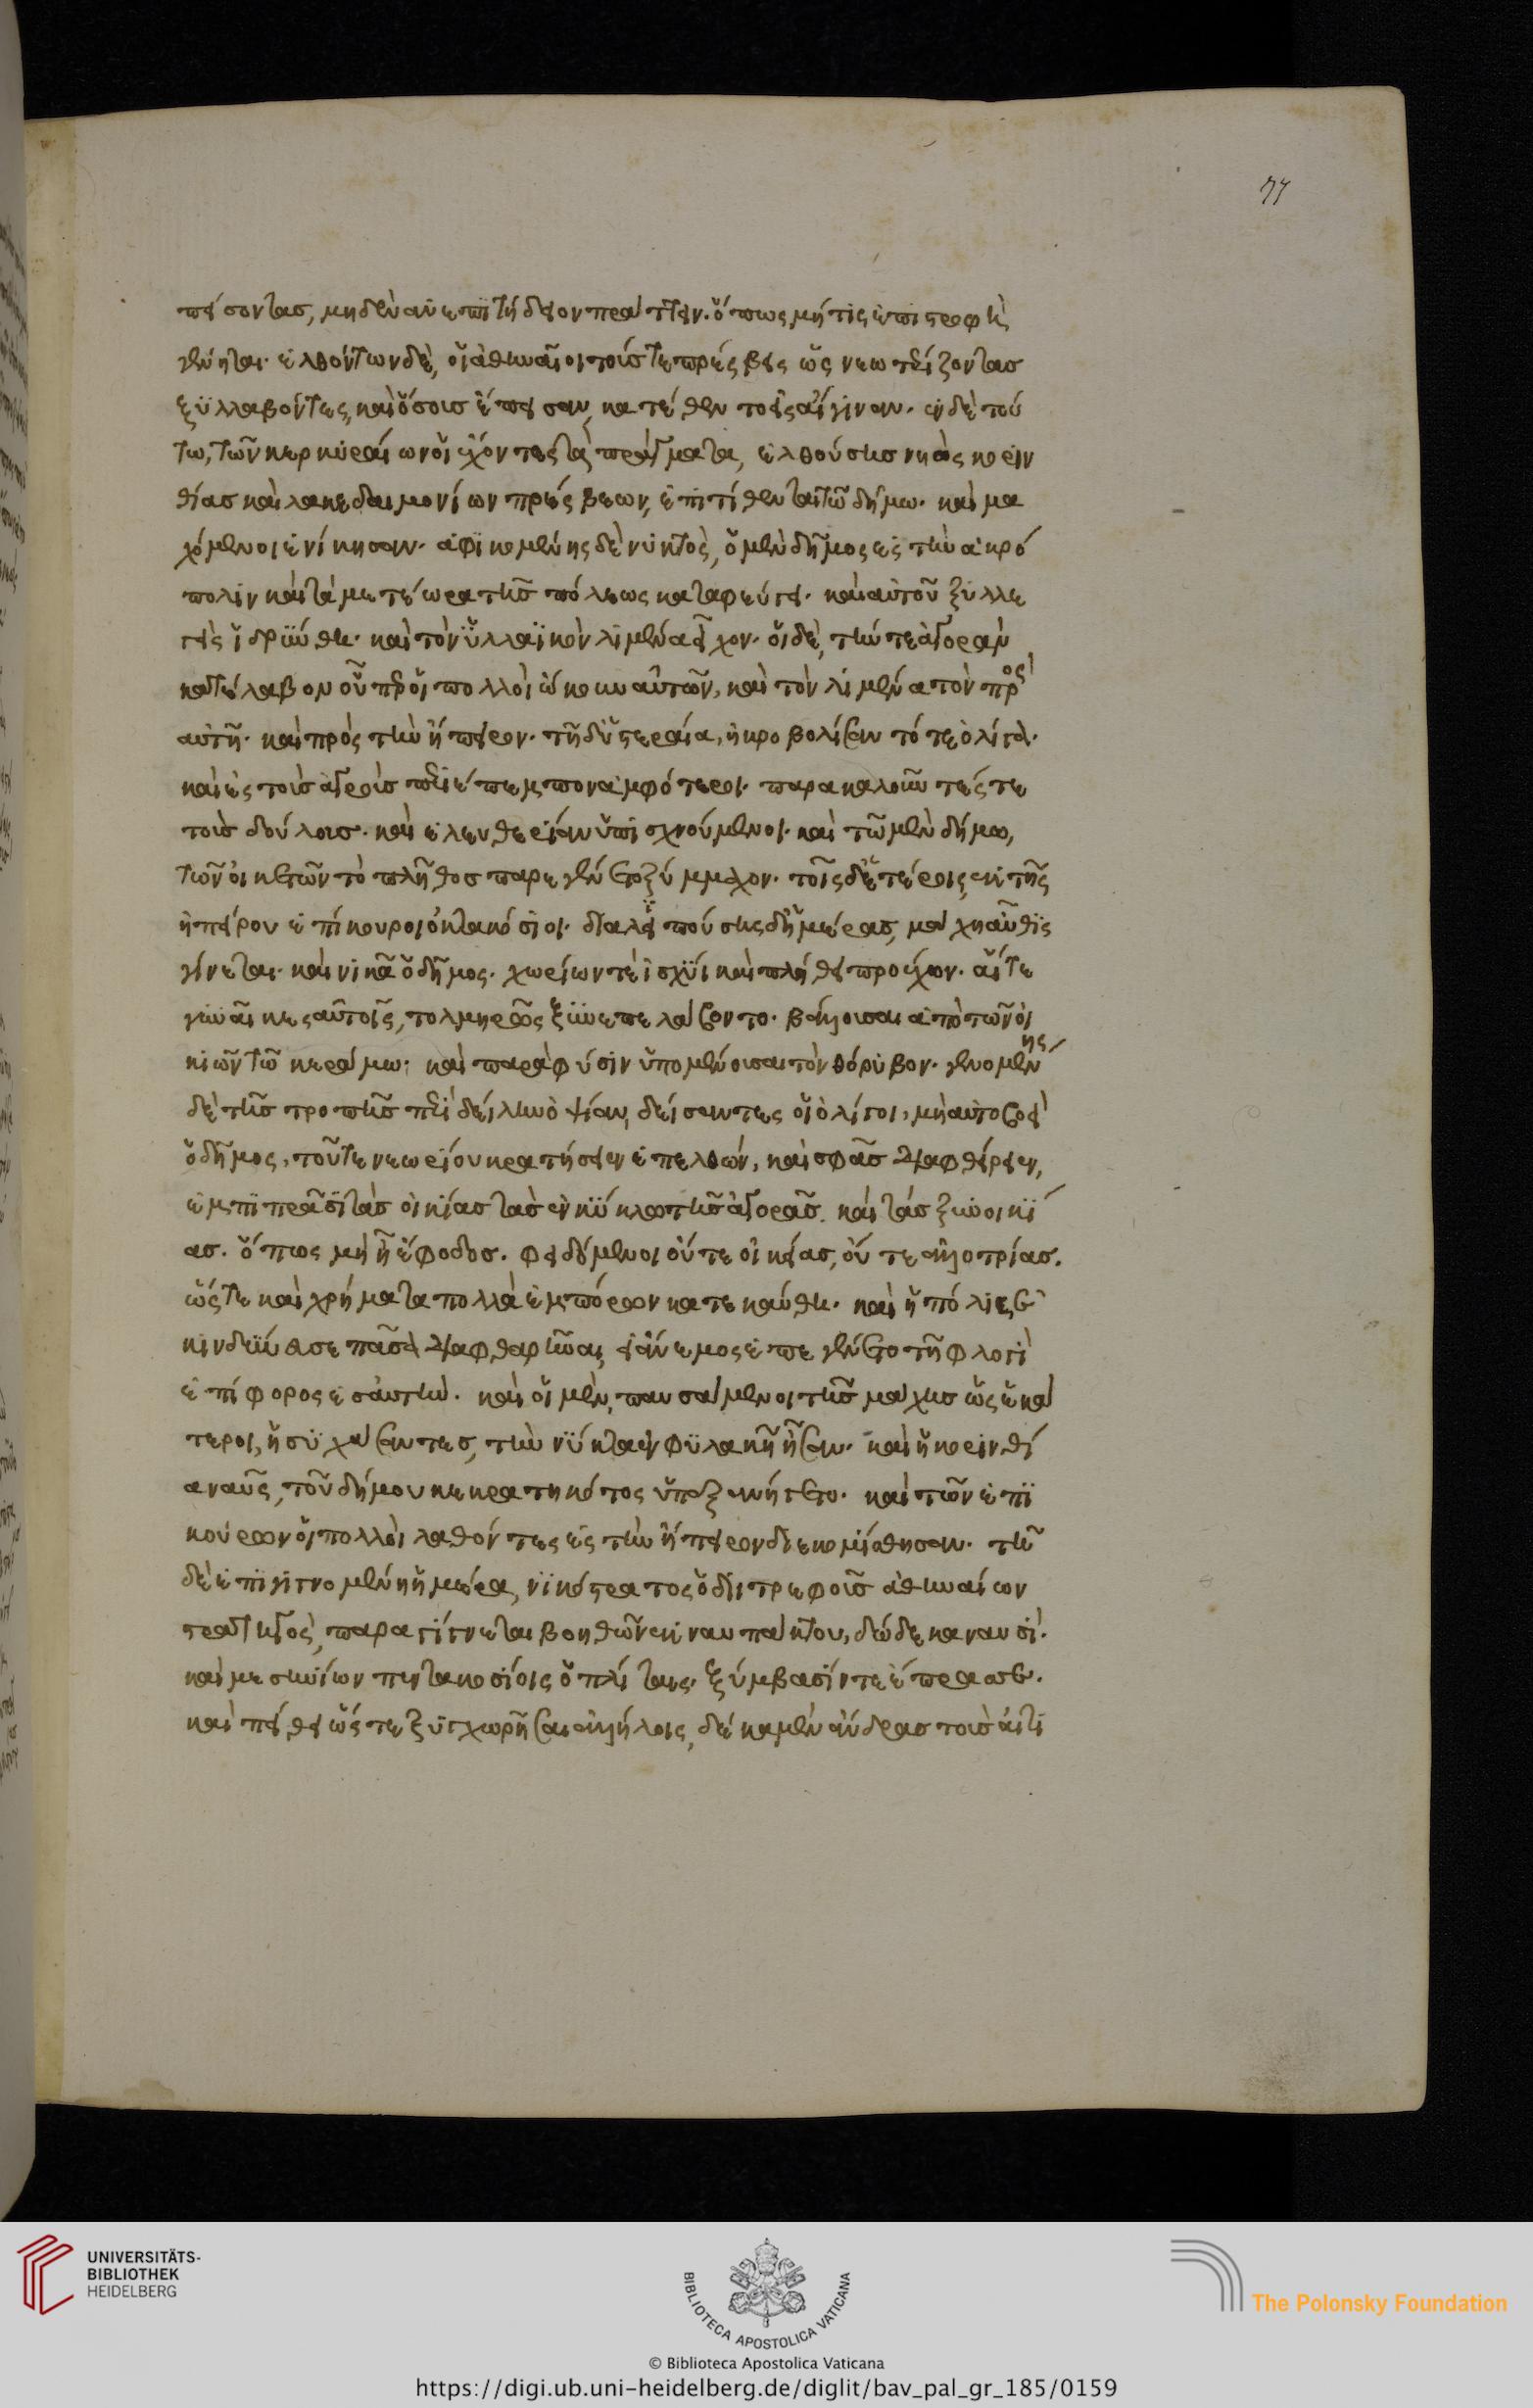 77
πείσοντας, μηδὲν ἀνεπιτήδειον πράττειν. ὅπως μή τις ἐπιστροφὴ
γένηται. ἐλθόντων δὲ, οἱ ἀθηναῖοι τούς τε πρέσβεις ὡς νεωτερίζοντας
ξυλλαβόντες, καὶ ὅσους ἔπεισαν, κατέθεντο εἰς αἴγιναν. ἐν δὲ τού
τω, τῶν κερκυραίων οἱ ἔχοντες τὰ πράγματα, ἐλθούσης νηὸς κοριν
θίας καὶ λακεδαιμονίων πρέσβεων, ἐπιτίθενται τῶ δήμω. καὶ μα
χόμενοι ἐνίκησαν. ἀφικομένης δὲ νυκτὸς, ὁ μὲν δῆμος ἐς τὴν ἀκρό
πολιν καὶ τὰ μετέωρα τῆς πόλεως καταφεύγει. καὶ αὐτοῦ ξυλλε
γεὶς ἱδρύνθη. καὶ τὸν ὑλλαϊκὸν λιμένα εἶχον. οἱ δὲ, τήν τε ἀγορὰν
κατέλαβον οὗπερ οἱ πολλοὶ ὤκουν αὐτῶν, καὶ τὸν λιμένα τὸν πρὸς
αὐτῆ. καὶ πρὸς τὴν ἤπειρον. τῆ δ' ὑστεραία, ἠκροβολίσαντό τε ὀλίγα.
καὶ ἐς τοὺς ἀγροὺς περιέπεμπον ἀμφότεροι. παρακαλοῦντές τε
τοὺς δούλους. καὶ ἐλευθερίαν ὑπισχνούμενοι. καὶ τῶ μὲν δήμω,
τῶν οἰκετῶν τὸ πλῆθος παρεγένετο ξύμμαχον. τοῖς δ' ἑτέροις, ἐκ τῆς
ἠπείρου ἐπίκουροι ὀκτακόσιοι. διαλειπούσης δ' ἡμέρας, μάχη αὖθις
γίνεται. καὶ νικᾶ ὁ δῆμος. χωρίων τε ἰσχύι καὶ πλήθει προέχων. αἵ τε
γυναῖκες αὐτοῖς, τολμηρῶς ξυνεπελάβοντο. βάλλουσαι ἀπὸ τῶν οἰ
κιῶν τῶ κεράμω; καὶ παρὰ φύσιν ὑπομένουσαι τὸν θόρυβον. γενομένης
δὲ τῆς τροπῆς περὶ δείλην ὀψίαν, δείσαντες οἱ ὀλίγοι, μὴ αὐτοβοεὶ
ὁ δῆμος, τοῦ τε νεωρίου κρατήσειεν ἐπελθών, καὶ σφᾶς διαφθείρειεν,
ἐμπιπρᾶσι τὰς οἰκίας τὰς ἐν κύκλω τῆς ἀγορᾶς. καὶ τὰς ξυνοικί
ας. ὅπως μὴ ἦ ἔφοδος. φειδόμενοι οὔτε οἰκείας, οὔτε ἀλλοτρίας.
ὥστε καὶ χρήματα πολλὰ ἐμπόρων κατεκαύθη. καὶ ἡ πόλις ἐ
κινδύνευσε πᾶσα διαφθαρῆναι, εἰ ἄνεμος ἐπεγένετο τῆ φλογὶ
ἐπίφορος ἐς αὐτήν. καὶ οἱ μὲν, παυσάμενοι τῆς μάχης ὡς ἑκά
τεροι, ἡσυχάσαντες, τὴν νύκτα ἐν φυλακῆ ἦσαν. καὶ ἡ κορινθί
α ναῦς, τοῦ δήμου κεκρατηκότος ὑπεξανήγετο. καὶ τῶν ἐπι
κούρων οἱ πολλοὶ λαθόντες ἐς τὴν ἤπειρον διεκομίσθησαν. τῆ
δὲ ἐπιγιγνομένη ἡμέρα, νικόστρατος ὁ διιτρεφοῦς ἀθηναίων
στρατηγὸς, παραγίγνεται βοηθῶν ἐκ ναυπάκτου, δώδεκα ναυσὶ.
καὶ μεσσηνίων πεντακοσίοις ὁπλίταις. ξύμβασίν τε ἔπρασσε.
καὶ πείθει ὥστε ξυγχωρῆσαι ἀλλήλοις, δέκα μὲν ἄνδρας τοὺς αἰτι
UNIVERSITÄTS-
BIBLIOTHEK
HEIDELBERG
BIBLIOTECA APOSTOLICA VATICANA
The Polonsky Foundation
© Biblioteca Apostolica Vaticana
https://digi.ub.uni-heidelberg.de/diglit/bav_pal_gr_185/0159